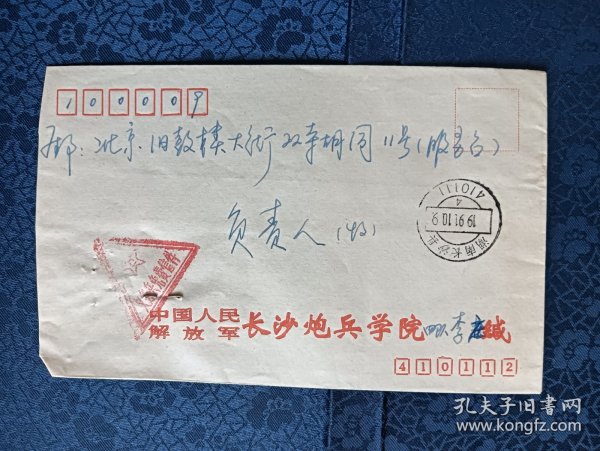 100009
邮：北京旧鼓楼大街双寺胡同11号(服务台)
负责人(收)
中国人民
解放军
长沙炮兵学院
四队李
缄
410112
湖南长沙县
1991.10.9
4
410111
孔夫子旧书网
www.kongfz.com